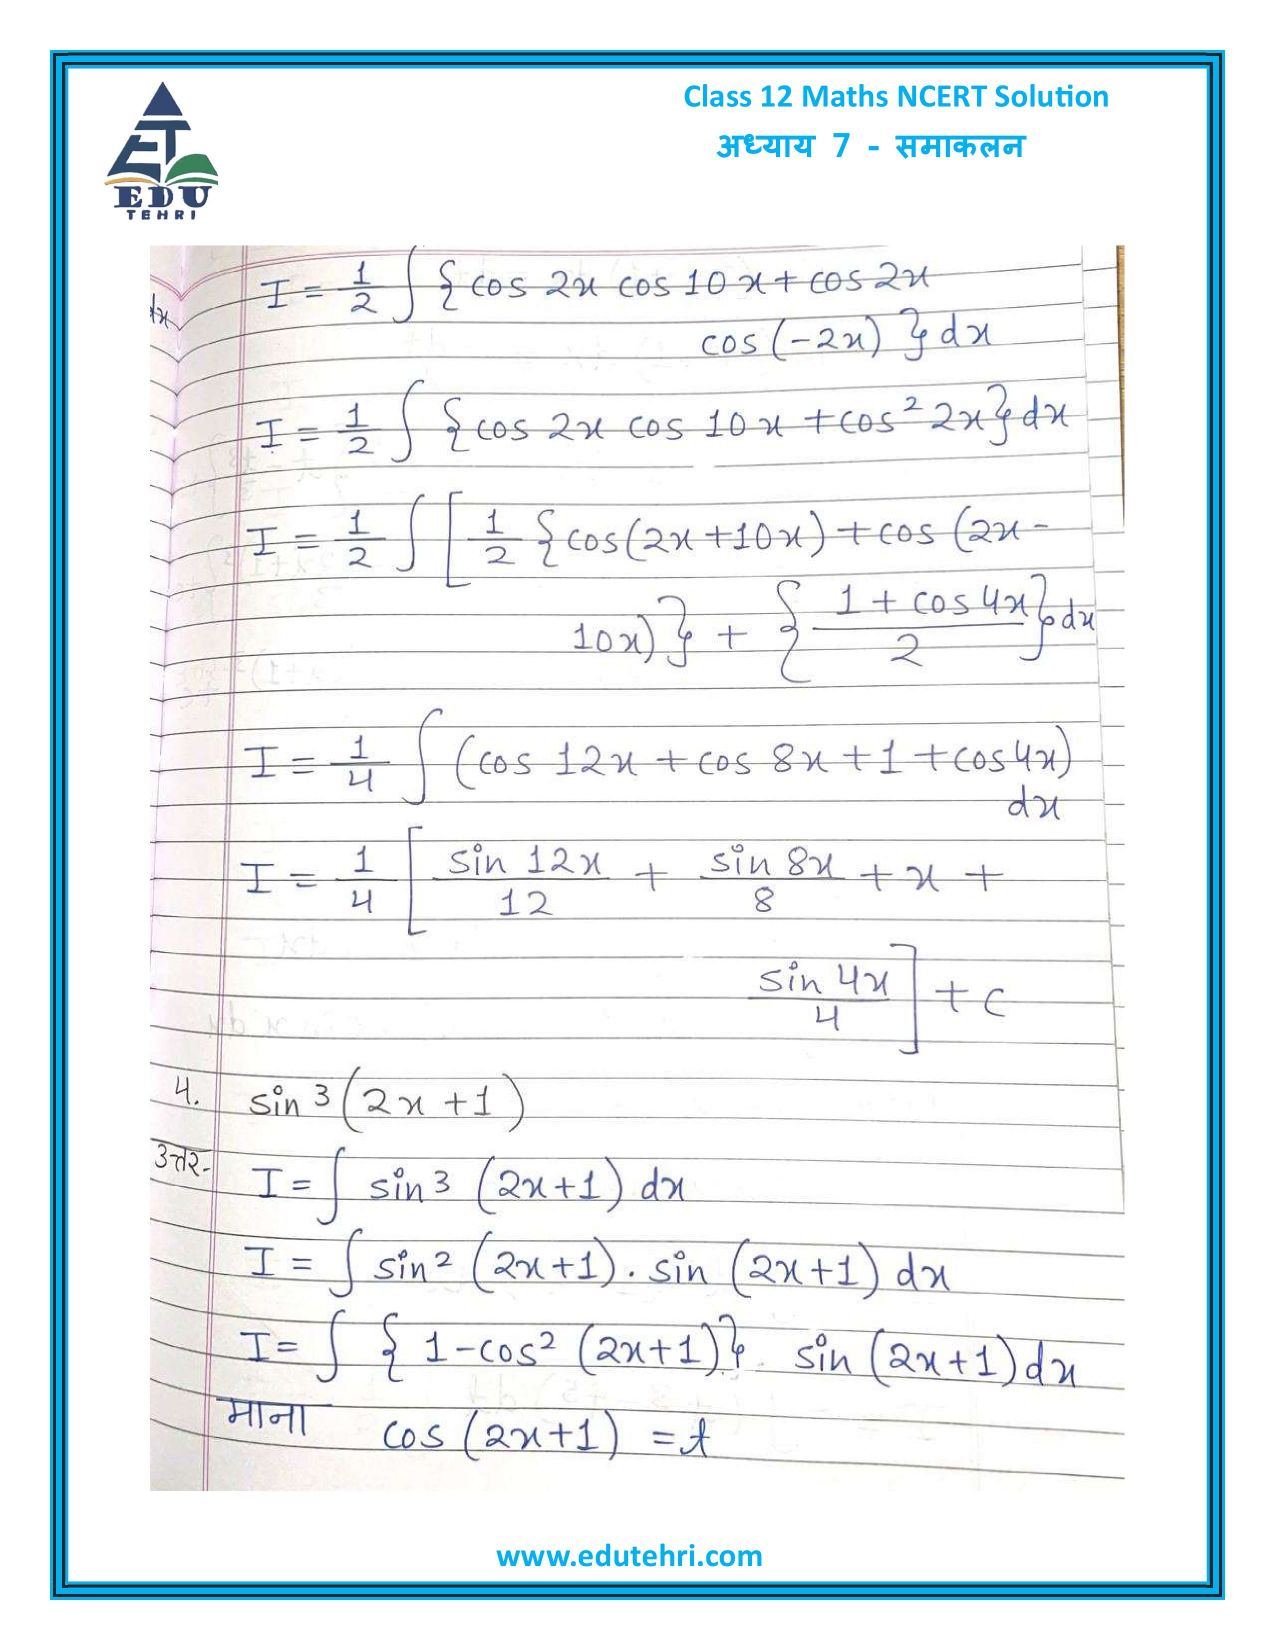 EDU
TEHRI
Class 12 Maths NCERT Solution
अध्याय 7 - समाकलन
dx
I = 1/2 ∫ { cos 2x cos 10x + cos 2x
cos (-2x) } dx
I = 1/2 ∫ { cos 2x cos 10x + cos² 2x } dx
I = 1/2 ∫ [ 1/2 { cos(2x+10x) + cos (2x -
10x) } + { (1 + cos 4x)/2 } dx
I = 1/4 ∫ (cos 12x + cos 8x + 1 + cos 4x)
dx
I = 1/4 [ sin 12x/12 + sin 8x/8 + x +
sin 4x/4 ] + c
4. sin³ (2x + 1)
उत्तर- I = ∫ sin³ (2x+1) dx
I = ∫ sin² (2x+1) . sin (2x+1) dx
I = ∫ { 1 - cos² (2x+1) } . sin (2x+1) dx
माना cos (2x+1) = t
www.edutehri.com